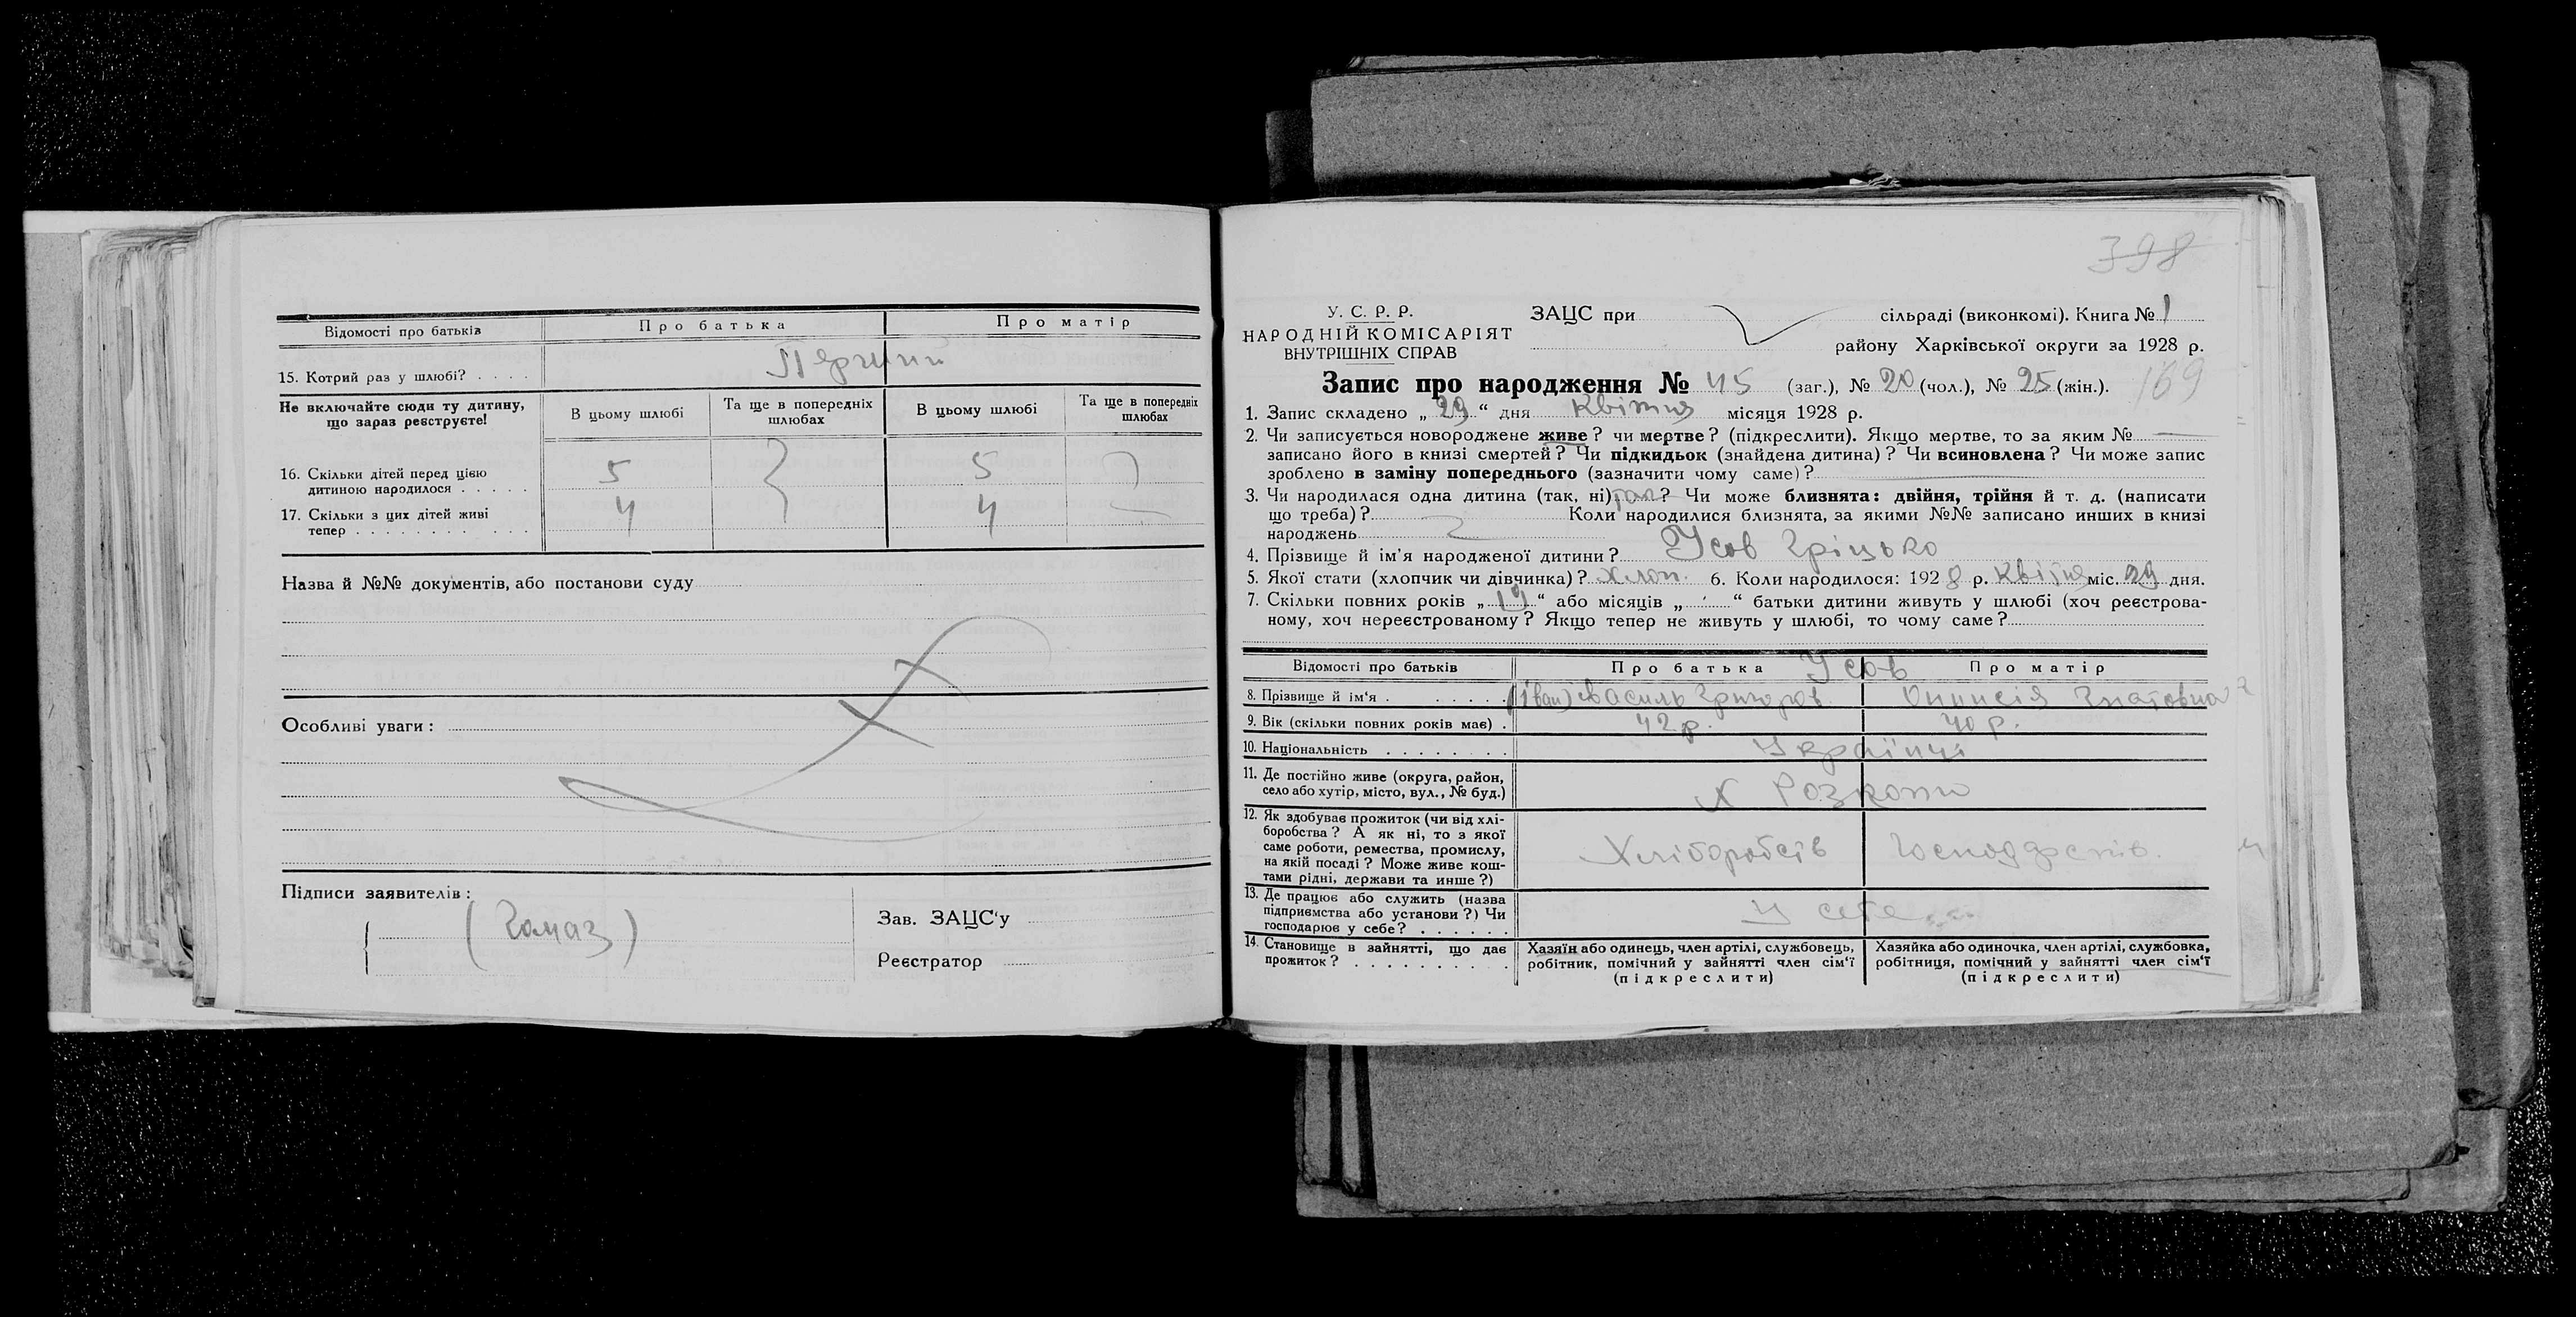 Відомості про батьків Про батька Про матір
15. Котрий раз у шлюбі? . . . . Перший
Не включайте сюди ту дитину, що зараз реєструєте!
В цьому шлюбі Та ще в попередніх шлюбах В цьому шлюбі Та ще в попередніх шлюбах
16. Скільки дітей перед цією
дитиною народилося . . . . . 5 5
17. Скільки з цих дітей живі
тепер . . . . . . . . . . . 4 4
Назва й №№ документів, або постанови суду
Особливі уваги :
Підписи заявителів :
Зав. ЗАЦС‘у
Реєстратор
398
У. С. Р. Р.
НАРОДНІЙ КОМІСАРІЯТ
ВНУТРІШНІХ СПРАВ
ЗАЦС при сільраді (виконкомі). Книга № 1
району Харківської округи за 1928 р.
169
Запис про народження № 45 (заг.), № 20 (чол.), № 25 (жін.).
1. Запис складено „ 29 “ дня квітня місяця 1928 р.
2. Чи записується новороджене живе? чи мертве? (підкреслити). Якщо мертве, то за яким №
записано його в книзі смертей? Чи підкидьок (знайдена дитина)? Чи всиновлена? Чи може запис
зроблено в заміну попереднього (зазначити чому саме)?
3. Чи народилася одна дитина (так, ні) ? Чи може близнята: двійня, трійня й т. д. (написати
що треба)? Коли народилися близнята, за якими №№ записано инших в книзі
народжень
4. Прізвище й ім’я народженої дитини? Усов Гріцько
5. Якої стати (хлопчик чи дівчинка)? хлоп. 6. Коли народилося: 1928 р. квітня міс. 29 дня.
7. Скільки повних років „ 19 “ або місяців „ “ батьки дитини живуть у шлюбі (хоч реєстрова-
ному, хоч нереєстрованому? Якщо тепер не живуть у шлюбі, то чому саме?
Відомості про батьків Про батька Усов Про матір
8. Прізвище й ім‘я . . . . . . (Іван) Василь Григоров
9. Вік (скільки повних років має) . 42 р. 40 р.
10. Національність . . . . . . . . Українці
11. Де постійно живе (округа, район,
село або хутір, місто, вул., № буд.) Х Розкопи
12. Як здобуває прожиток (чи від хлі-
боробства? А як ні, то з якої
саме роботи, ремества, промислу,
на якій посаді? Може живе кош-
тами рідні, держави та инше?)
13. Де працює або служить (назва
підприємства або установи?) Чи
господарює у себе? . . . . . . У себе
14. Становище в зайнятті, що дає
прожиток? . . . . . . . . . .
Хазяїн або одинець, член артілі, службовець,
робітник, помічний у зайнятті член сім‘ї
(підкреслити)
Хазяйка або одиночка, член артілі, службовка,
робітниця, помічний у зайнятті член сім‘ї
(підкреслити)